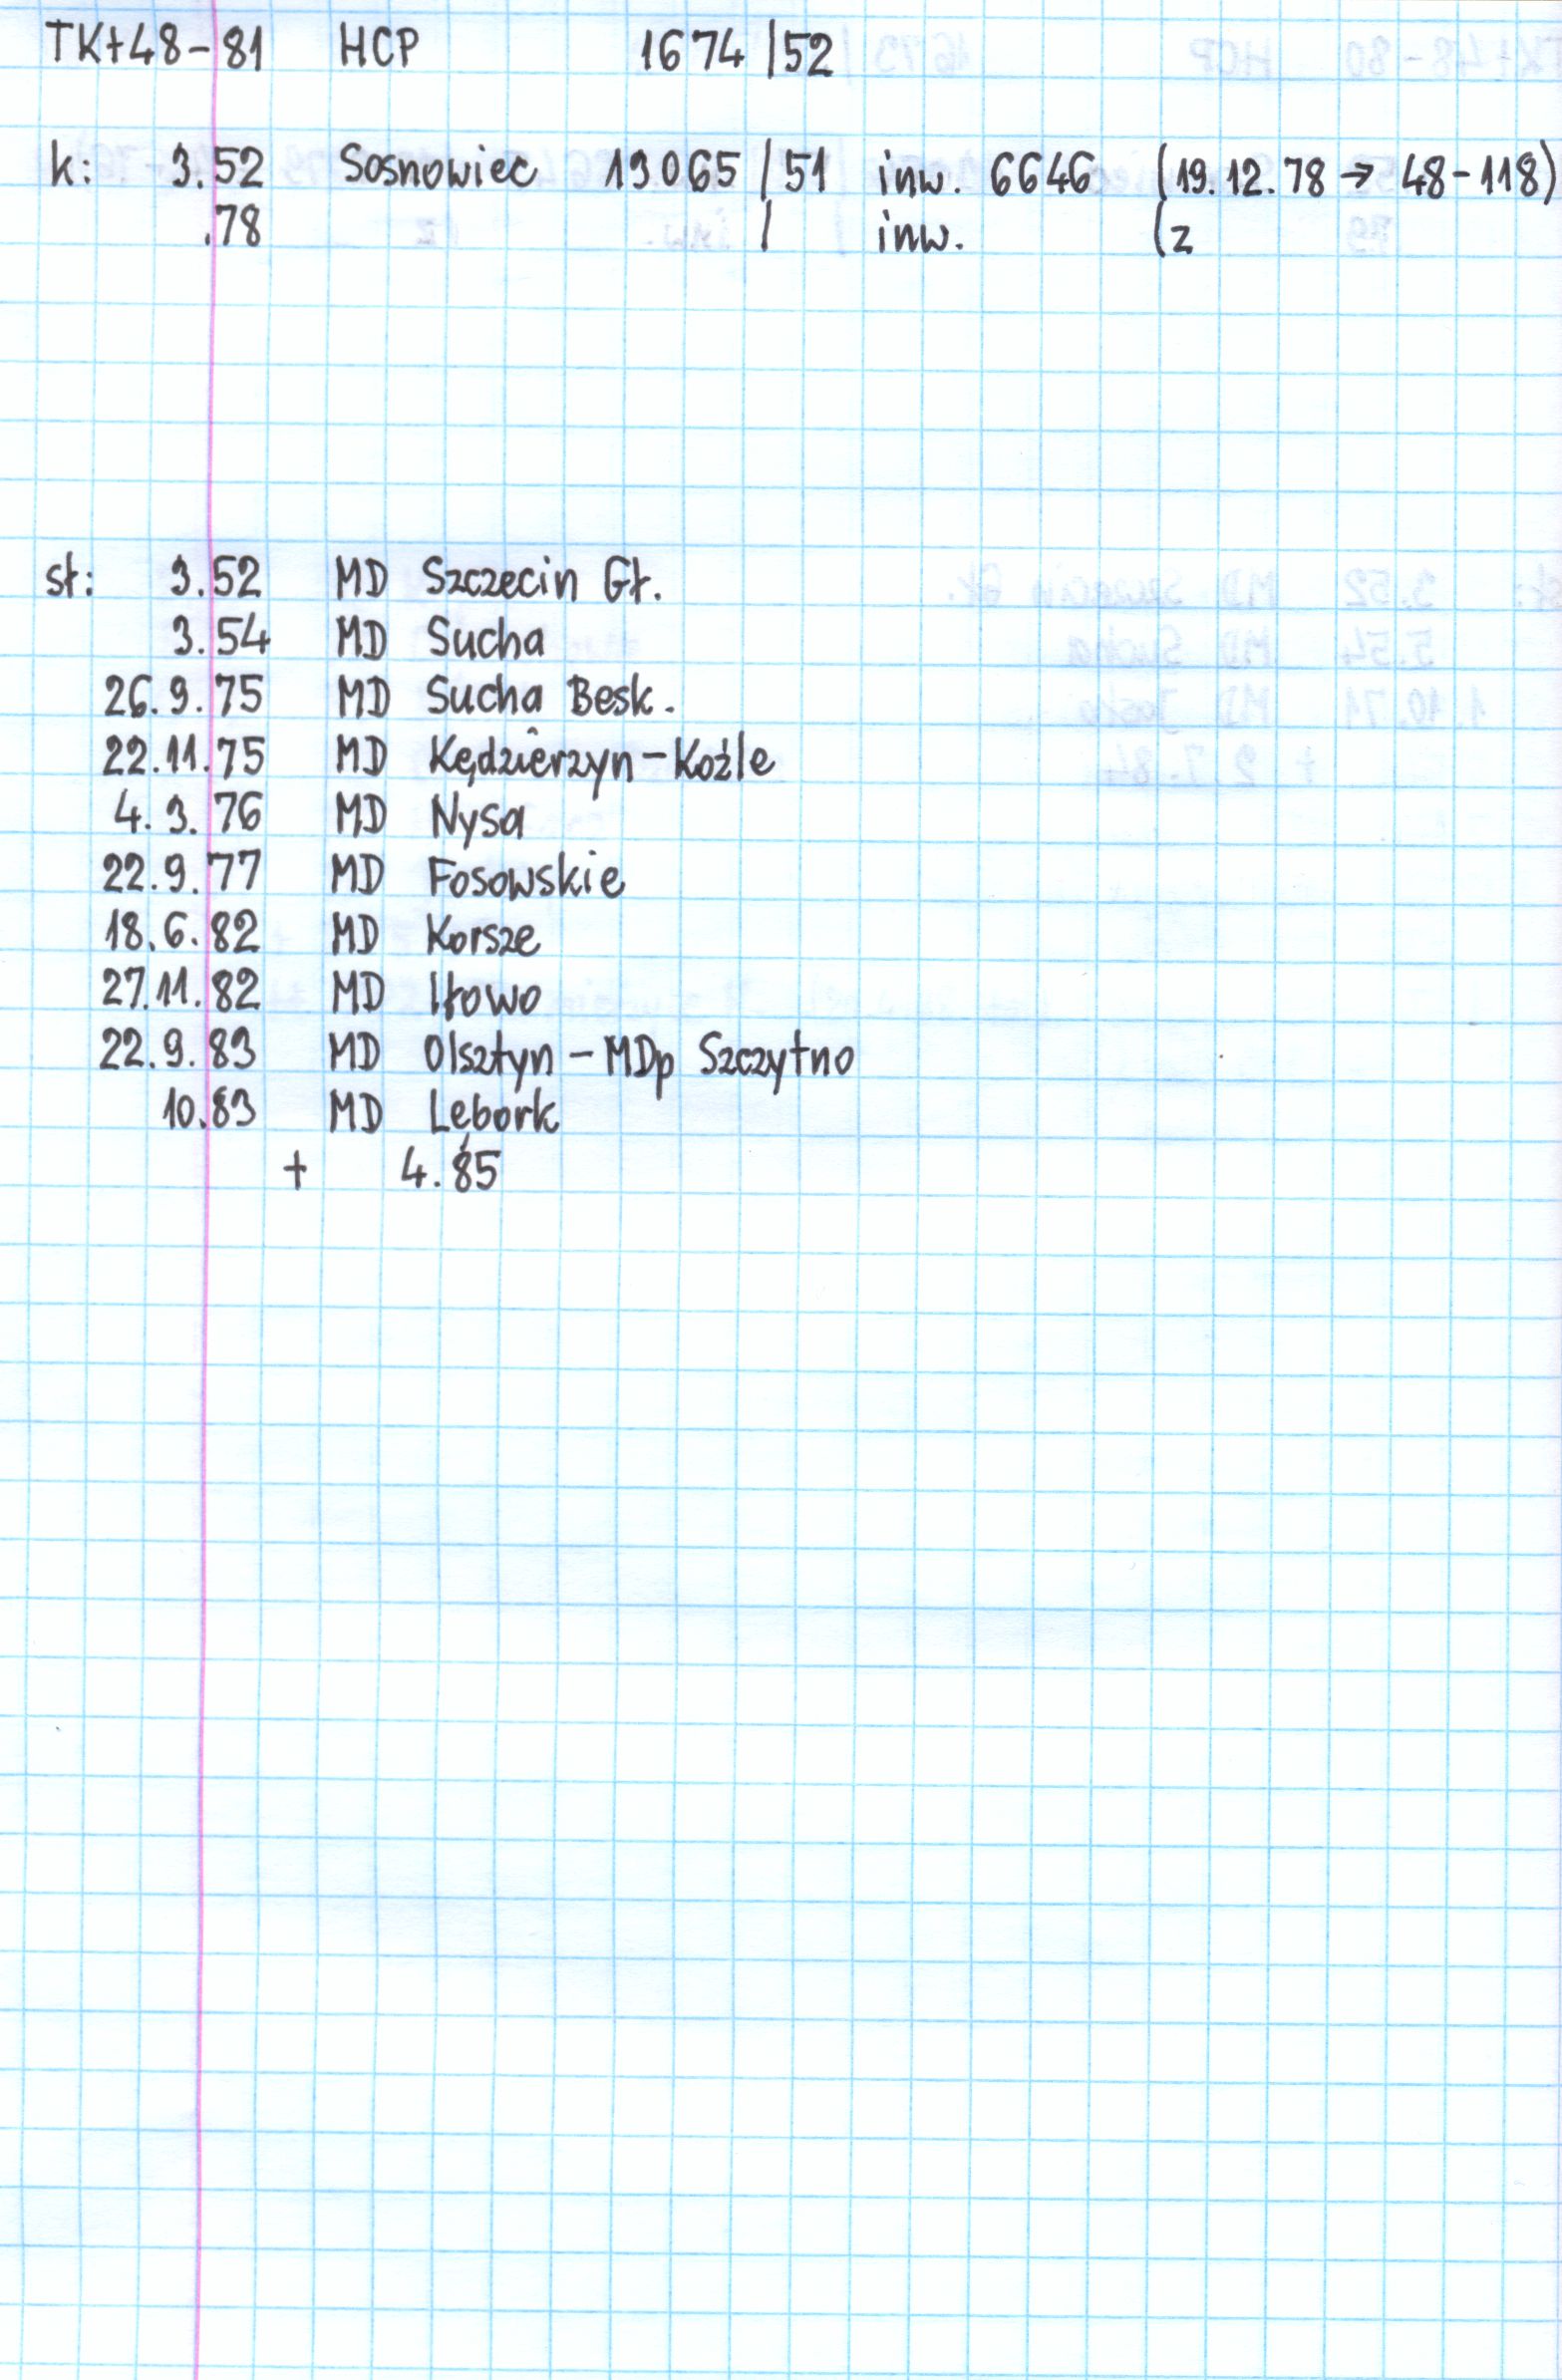 TKt48-81 HCP 1674/52
k: 3.52 Sosnowiec 13065/51 inw. 6646 (19.12.78 → 48-118)
.78 / inw. (z
st: 3.52 MD Szczecin Gł.
3.54 MD Sucha
26.9.75 MD Sucha Besk.
22.11.75 MD Kędzierzyn-Koźle
4.3.76 MD Nysa
22.9.77 MD Fosowskie
18.6.82 MD Korsze
27.11.82 MD Iłowo
22.9.83 MD Olsztyn - MDp Szczytno
10.83 MD Lębork
+ 4.85